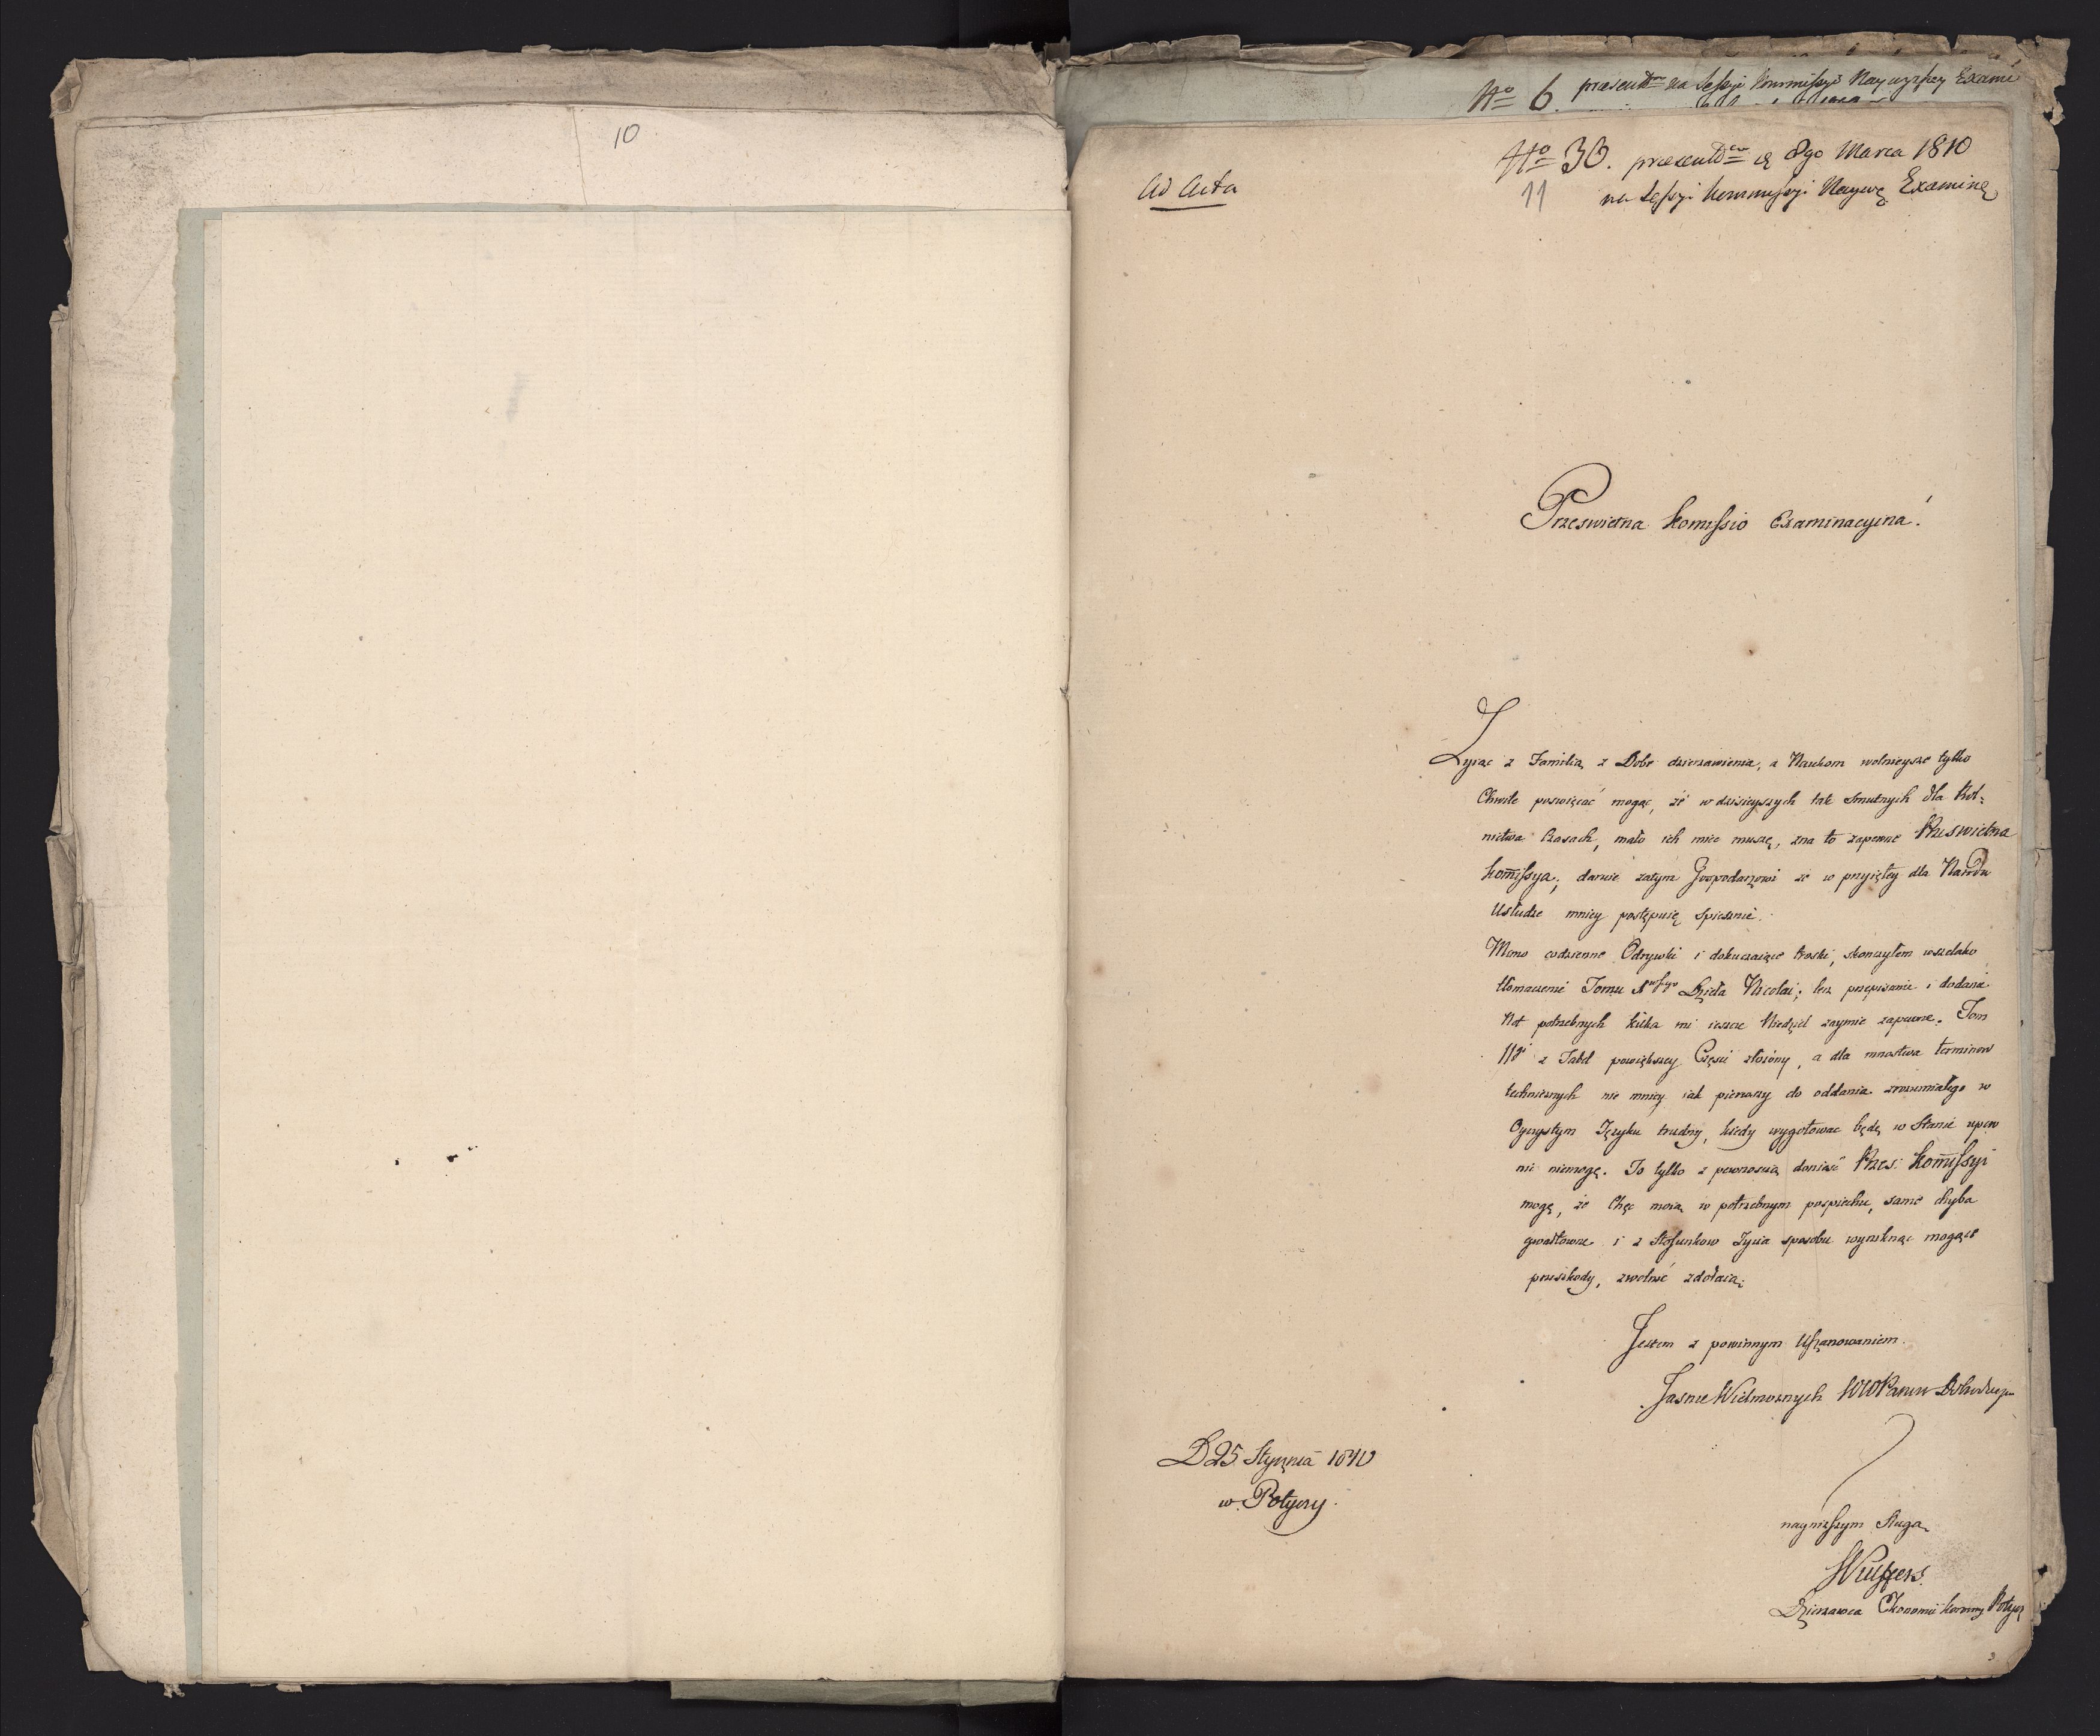 10
No 6. praesent na Sessyi Kommissyi Naywyzszey Exami
No 30. praesent d 8go Marca 1810
na Sessyi Kommissyi Naywz Examina
11
Ad Acta
Prześwietna Komissio Examinacyina!
Zyiąc z Familią z Dobr dzierzawienia, a Naukom wolnieysze tylko
Chwile poswięcać mogąc, że w dzisieyszych tak smutnych dla Rol-
nictwa Czasach, mało ich miec muszę, zna to zapewne Prześwietna
Komissya; daruie zatym Gospodarzowi ze w przyiętey dla Narodu
Usłudze mniey postępuię spiesznie.
Mimo codzienne Odrywki i dokuczaiące troski, skonczyłem wszelako
tłomaczenie Tomu Dzieła Nicolai; lecz przepisanie i dodanie
Not potrzebnych kilka mi ieszcze Niedziel zaymie zapewne. Tom
IIgi z Tabel powiększey Częsci złożony, a dla mnostwa terminow
technicznych nie mniey iak pierwszy do oddania zrozumiałego w
Oyczystym Języku trudny, kiedy wygotowac będę w Stanie upew
nic niemogę. To tylko z pewnoscią donieść Przes: Komissyi
mogę, że Chęc moią w potrzebnym pospiechu, same chyba
gwałtowne i z Stosunkow Zycia sposobu wyniknąc mogące
przeszkody, zwolnić zdołaią.
Jestem z powinnym Uszanowaniem
Jasnie Wielmoznych WWPanow Dobrodzieiow
D 25 Stycznia 1810
w Potyczy.
naynizszym Sługą
Dzierzawca Ekonomii Potycz